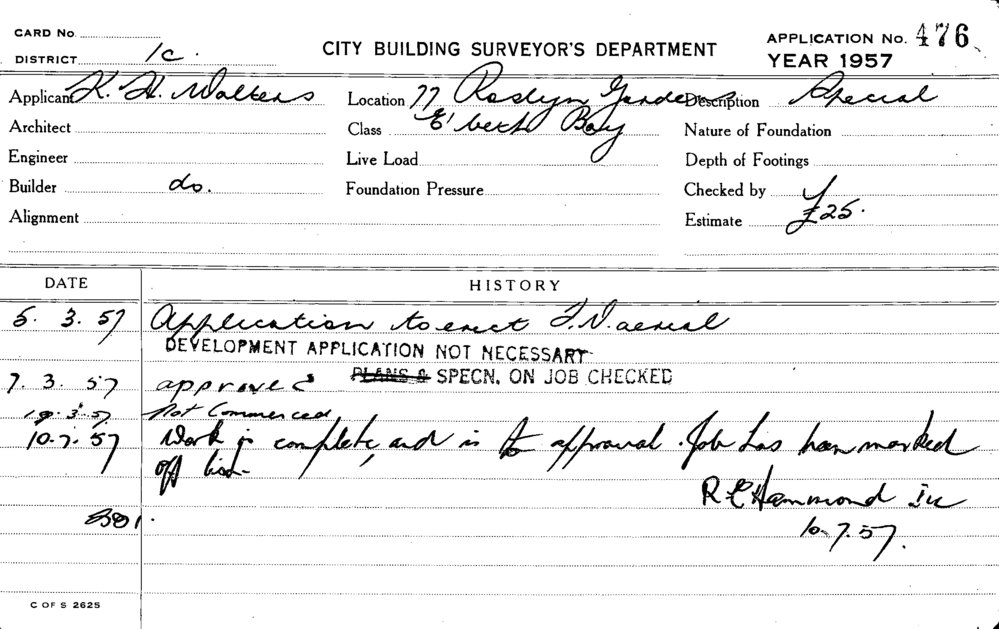 CARD No.
DISTRICT 1c.
CITY BUILDING SURVEYOR'S DEPARTMENT
APPLICATION No. 476
YEAR 1957
Applicant K. H. Walters Location 77 Roslyn Gardens Description Special
Architect Class E'beth Bay Nature of Foundation
Engineer Live Load Depth of Footings
Builder do. Foundation Pressure Checked by
Alignment Estimate £25.
DATE HISTORY
5. 3. 57 Application to erect T.V. aerial
DEVELOPMENT APPLICATION NOT NECESSARY
PLANS & SPECN. ON JOB CHECKED
7. 3. 57 approved
19. 3. 57. Not Commenced
10. 7. 57 Work is complete, and is to approval. Job has been marked
off list.
R E Hammond
10. 7. 57.
C OF S 2625